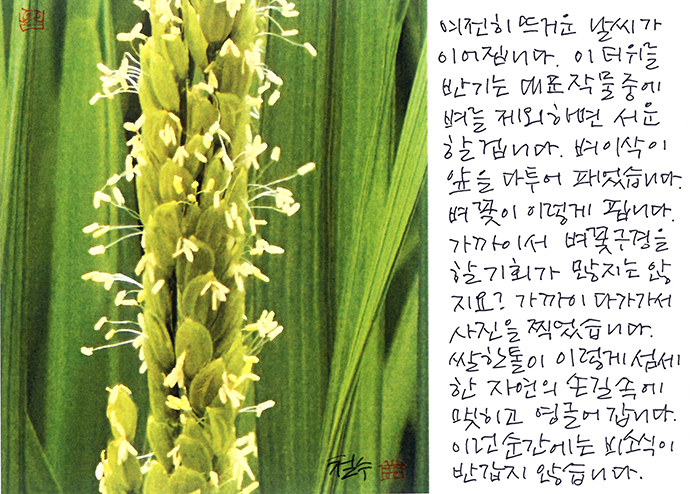 여전히 뜨거운 날씨가
이어집니다. 이 더위를
반기는 대표작물 중에
벼를 제외하면 서운
할 겁니다. 벼이삭이
앞을 다투어 패었습니다.
벼꽃이 이렇게 핍니다.
가까이서 벼꽃구경을
할 기회가 많지는 않
지요? 가까이 다가가서
사진을 찍었습니다.
쌀 한톨이 이렇게 섬세
한 자연의 손길 속에
맺히고 영글어 갑니다.
이런 순간에는 비소식이
반갑지 않습니다.
철수